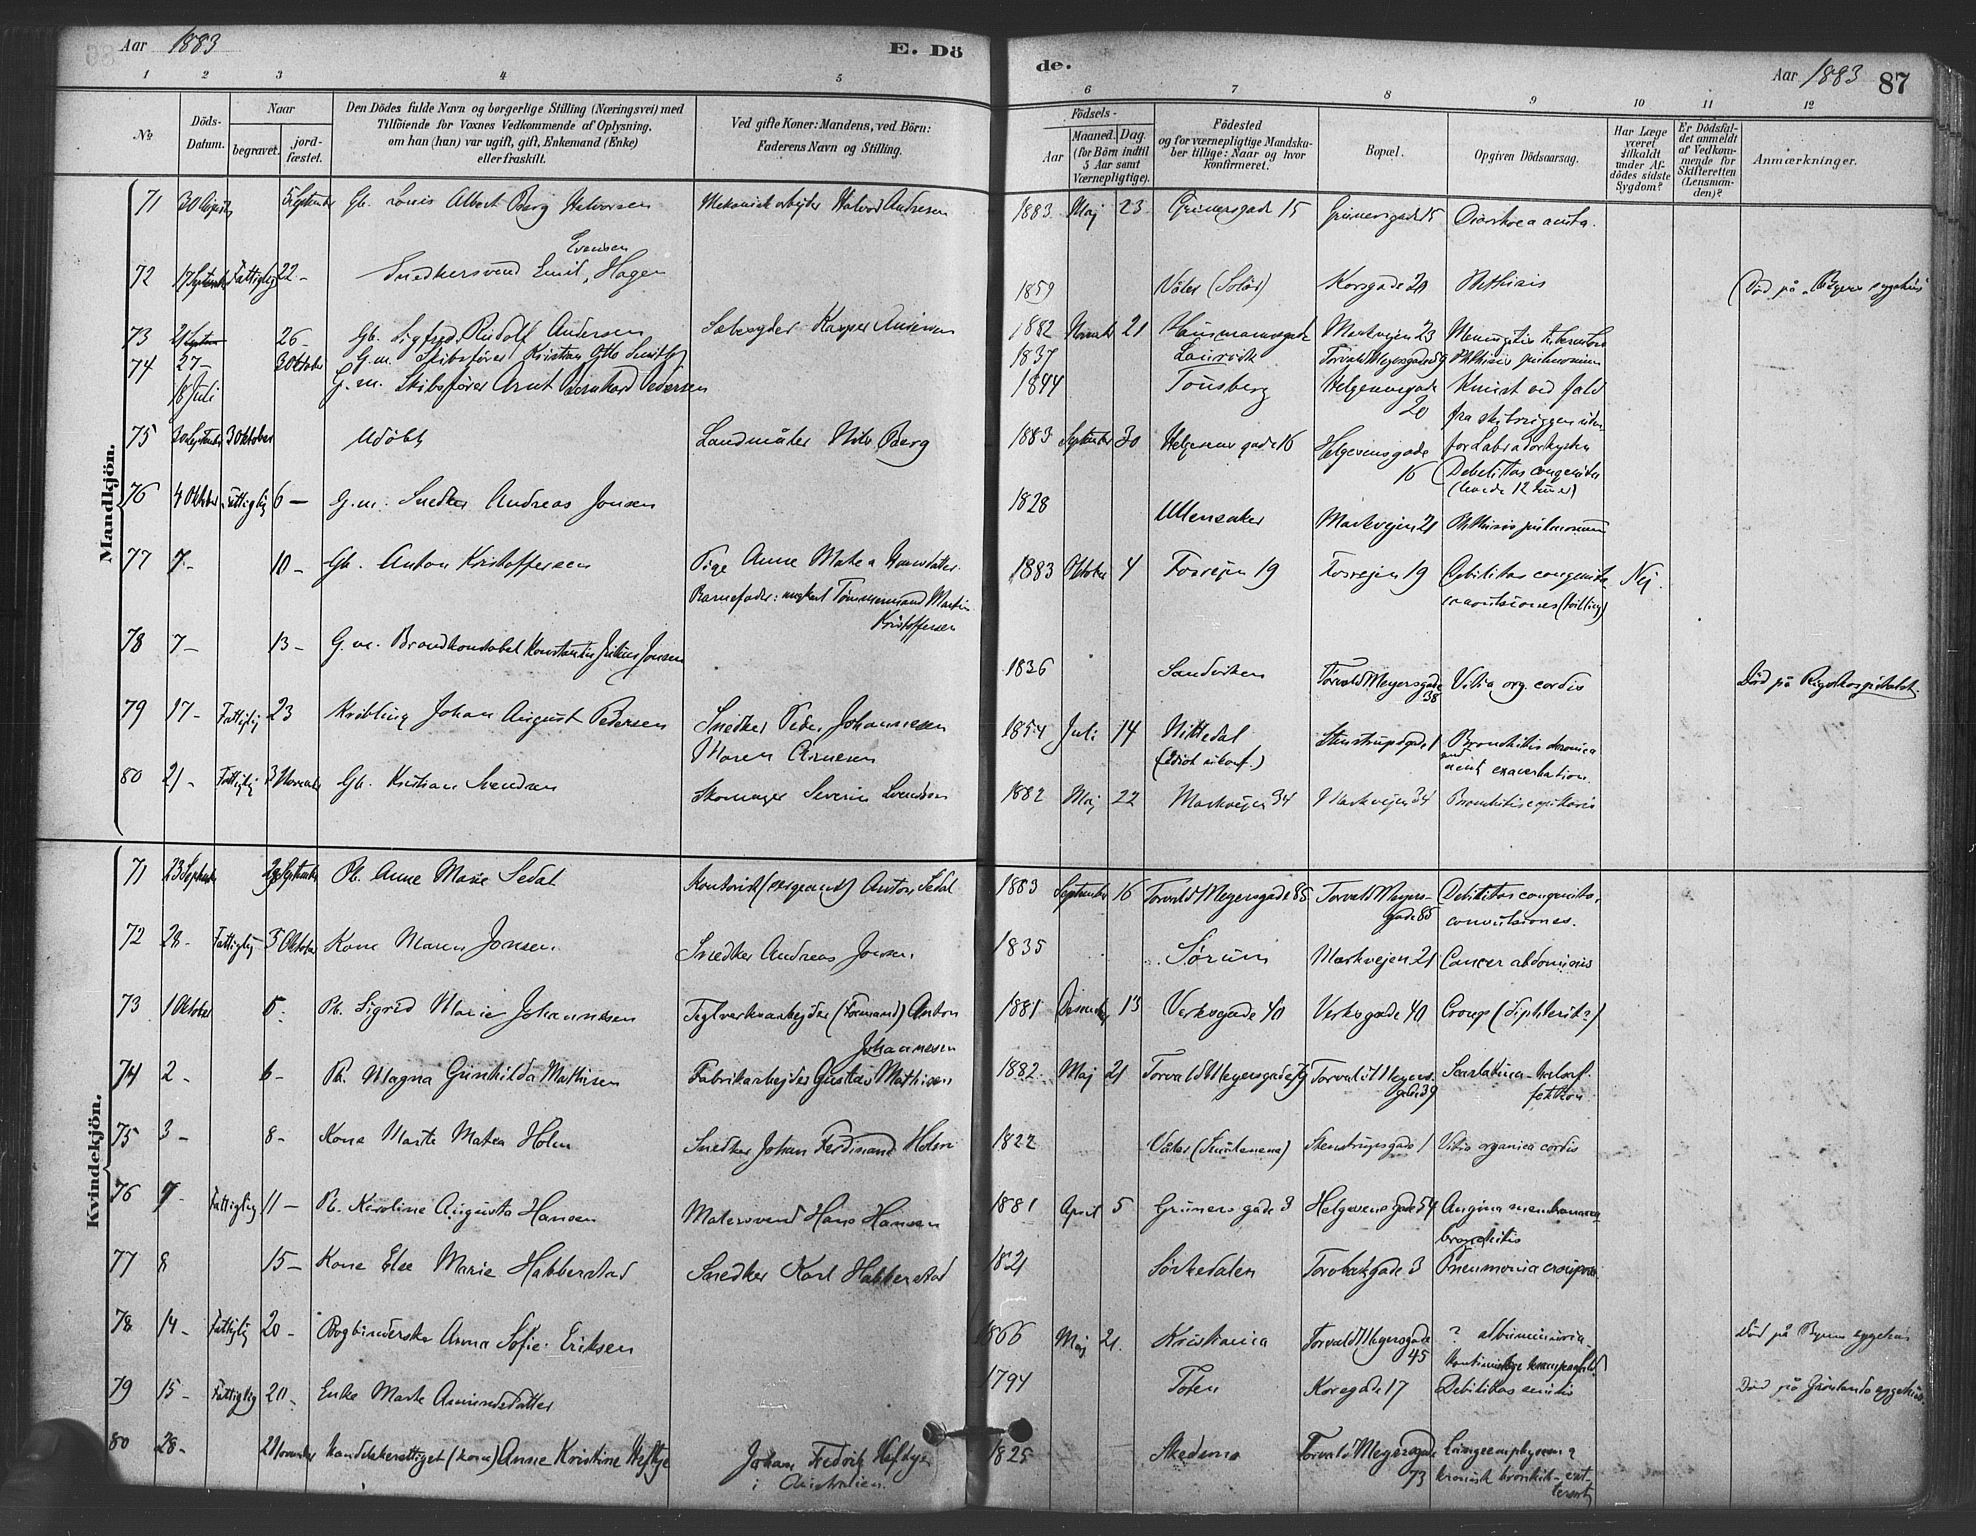 Aar 1883
E. Dö
de.
Aar 1883 87
1 2 3 4 5 6 7 8 9 10 11 12
No
Döds-Datum.
Naar
begravet.
jord-fæstet.
Den Dödes fulde Navn og borgerlige Stilling (Næringsvei) med
Tilföiende for Voxnes Vedkommende af Oplysning,
om han (hun) var ugift, gift, Enkemand (Enke)
eller fraskilt.
Ved gifte Koner: Mandens, ved Börn:
Faderens Navn og Stilling.
Födsels-
Aar
Maaned. Dag.
(for Börn indtil
5 Aar samt
Værnepligtige).
Födested
og for værnepligtige Mandska-
ber tillige: Naar og hvor
konfirmeret.
Bopæl.
Opgiven Dödsaarsag.
Har Læge
været
tilkaldt
under Af-
dödes sidste
Sygdom?
Er Dödsfal-
det anmeldt
af Vedkom-
mende for
Skifteretten
(Lensman-
den)?
Anmærkninger.
Mandkjön.
71 30 August 5 September Gb. Louis Albert Berg Halvorsen Mekanisk arbejder Halvord Andresen 1883 Maj 23 Grünersgade 15 Grünersgade 15 Diarrhoea acuta.
Evensen
72 17 September Fattiglig 22 - Snedkersvend Emil Hagen 1859 Våler (Solør) Korsgade 20 Phthisis Død på Byens sygehus
73 21 26 - Gb. Sigfred Rudolf Andersen Kasper Andersen 1882 November 21 Hausmannsgade Markvejen 23 Meningitis tuberculosa
74 27 - 3 Oktober G.m. Skibsfører Kristian Otto Smith 1837 Laurvik Torvald Meyersgade Phthisis pulmonum
18 Juli G.m. Skibsfører Arnt Bernhard Pedersen 1844 Tönsberg Helgesensgade 20 Knust ved fald
fra skibsriggen uden
for Labradorkysten
75 30 September 3 Oktober Udöbt Landmåler Nils Berg 1883 September 30 Helgesens gade 16 Helgesensgade 16 Debilitas congenita
(levede 12 timer)
76 4 Oktober Fattiglig 6 - G.m. Snedker Andreas Jonsen 1828 Ullensaker Markvejen 21 Phthisis pulmonum
77 7 - 10 - Gb. Anton Kristoffersen Pige Anne Mathea
Barnefader: ungkarl Tømmermand Martin
Kristoffersen 1883 Oktober 4 Fosvejen 19 Fosvejen 19 Debilitas congenita
convulsiones (tvilling) Nej.
78 7 - 13 - G.m. Brandkonstabel Konstantin Julius Jonsen 1836 Sandviken Torvald Meyersgade 38 Vitia org. cordis Død på Rigshospitalet.
79 17 - Fattiglig 23 Krøbling Johan August Pedersen Snedker Peder Johannesen
Maren Arnesen 1854 Juli 14 Nittedal
(Idiot ukonf.) Stenstrupsgade 1 Bronchitis chronica
acut exacerbation.
80 21 - Fattiglig 3 November Gb. Kristian Svendsen Skomager Severin Svendsen 1882 Maj 22 Markvejen 34 Markvejen 34 Bronchitis capillaris
Kvindekjön.
71 23 September 28 September Pb. Anne Marie Sedal Kontorist (exigeant) Anton Sedal 1883 September 16 Torvald Meyersgade 85 Torvald Meyers-
gade 85 Debilitas congenita,
convulsiones.
72 28 - Fattiglig 5 Oktober Kone Maren Jonsen. Snedker Andreas Jonsen. 1835 Sørum Markvejen 21 Cancer abdominis
73 1 Oktober 5 - Pb. Sigrid Marie Johannesen Teglverksarbejder (Formand) Anton
Johannesen 1881 December 13 Verksgade 40 Verksgade 40 Croup (diphterik?)
74 2 - 6 - Pb. Magna Gunhilda Mathisen Fabrikarbejder Gustav Mathisen 1882. Maj 21 Torvald Meyersgade 39 Torvald Meyers-
gade 39 Scarlatina
75 3 - 8 - Kone Marte Matea Holm Snedker Johan Ferdinand Holm 1822 Våler (Smålenene) Stenstrupsgade 1 Vitia organica cordis
76 7 - Fattiglig 11 - Pb. Karoline Augusta Hansen Malersvend Hans Hansen 1881 April 5 Grüners gade 3 Helgesens gade 54 Angina membranacea
bronchitis
77 8 15 - Kone Else Marie Habberstad Snedker Karl Habberstad 1821 Sörkedalen Torvbakgade 3 Pneumonia crouposa
78 14 - Fattiglig 20 - Bogbinderske Anna Sofie Eriksen 1866 Maj 21. Kristiania Torvald Meyersgade 45 ? albuminuria
Død på Byens sygehus
79 15 - Fattiglig 20 - Enke Marte Amundsdatter 1794 Toten Korsgade 17 Debilitas senilis Død på Grønlands sygehus.
80 28 - 2 November Handelsberettiget (kone) Anne Kristine Heftye Johan Fredrik Heftye
i Australien. 1825 Skedsmo Torvald Meyersgade 73 Lungeemphysem?
kronisk bronkit